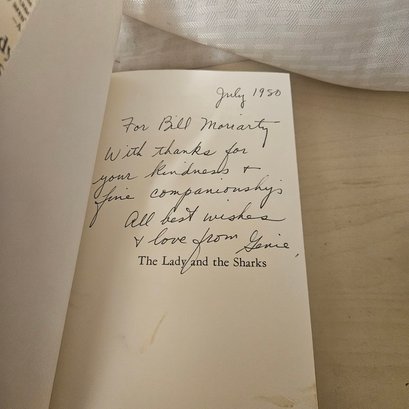 July 1980
For Bill Moriarty
With thanks for
your kindness +
fine companionship
All best wishes
& love from Genie,
The Lady and the Sharks